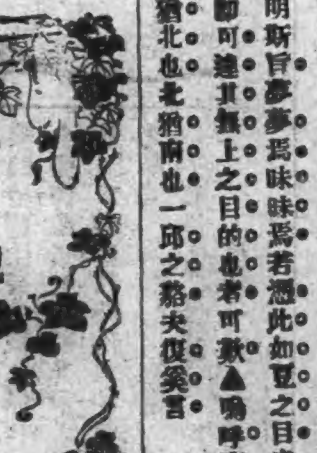 明斯旨夢夢焉昧昧焉若憑此如豆之目
即可達其無上之目的也者可歎▲嗚呼
猶北也北猶南也一邱之貉夫復奚言